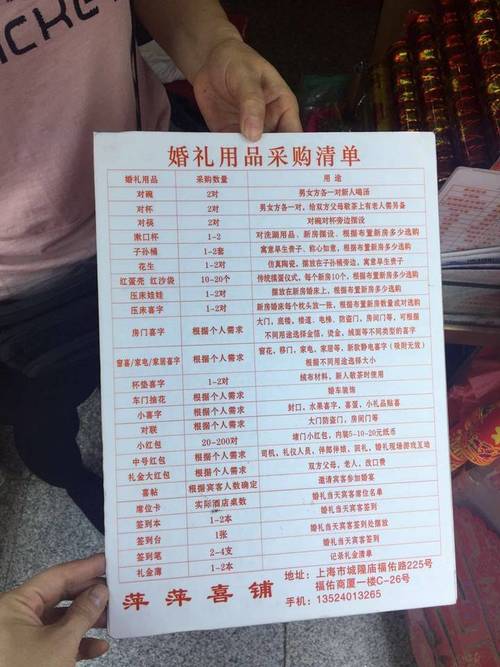 婚礼用品采购清单
婚礼用品 采购数量 用途
对碗 2对 男女方各一对新人喝汤
对杯 2对 男女方各一对，给双方父母敬茶上有老人需另备
对筷 2对 对碗对杯旁边摆设
漱口杯 1-2 对洗漱用品、新房摆设、根据布置新房多少选购
子孙桶 1-2套 寓意早生贵子、称心如意，根据布置新房多少选购
花生 1-2对 仿真陶瓷，摆放在子孙桶旁边，寓意早生贵子
红蛋壳 红沙袋 10-20个 传统摆蛋仪式，每个新房10个，根据布置新房多少选购
压床娃娃 1-2对 摆放在新房婚床上，根据布置新房多少选购
压床喜字 1-2对 新房婚床每个枕头放一张、根据新房数量或对选购
房门喜字 根据个人需求 大门，底楼，楼道，电梯，防盗门，房间门等，可根据
不同用途选择金箔，烫金，绒面等不同类型的喜字
窗喜/家电/家居喜字 根据个人需求 窗花，移门，家电，家居等，新款静电喜字（吸附无放）
根据不同用途选择大小
杯垫喜字 1-2对 绒布材料，新人敬茶时使用
车门抽花 根据个人需求 婚车装饰
小喜字 根据个人需求 封口，水果喜字，喜蛋，小礼品贴喜
对联 根据个人需求 大门防盗门，房间门等
小红包 20-200对 堵门小红包，内装5-10-20元纸币
中号红包 根据个人需求 司机，礼仪人员，伴郎伴娘，回礼，婚礼现场游戏互动
礼金大红包 根据个人需求 双方父母，老人，改口费
喜帖 根据宾客人数确定 邀请宾客参加婚宴
席位卡 实际酒店桌数 婚礼当天宾客席位名单
签到本 1-2本 婚礼当天宾客签到
签到台 1张 婚礼当天宾客签到处摆放
签到笔 2-4支 婚礼当天宾客签到
礼金薄 1-2本 记录礼金清单
萍萍喜铺
地址：上海市城隍庙福佑路225号
福佑商厦一楼C-26号
手机：13524013265